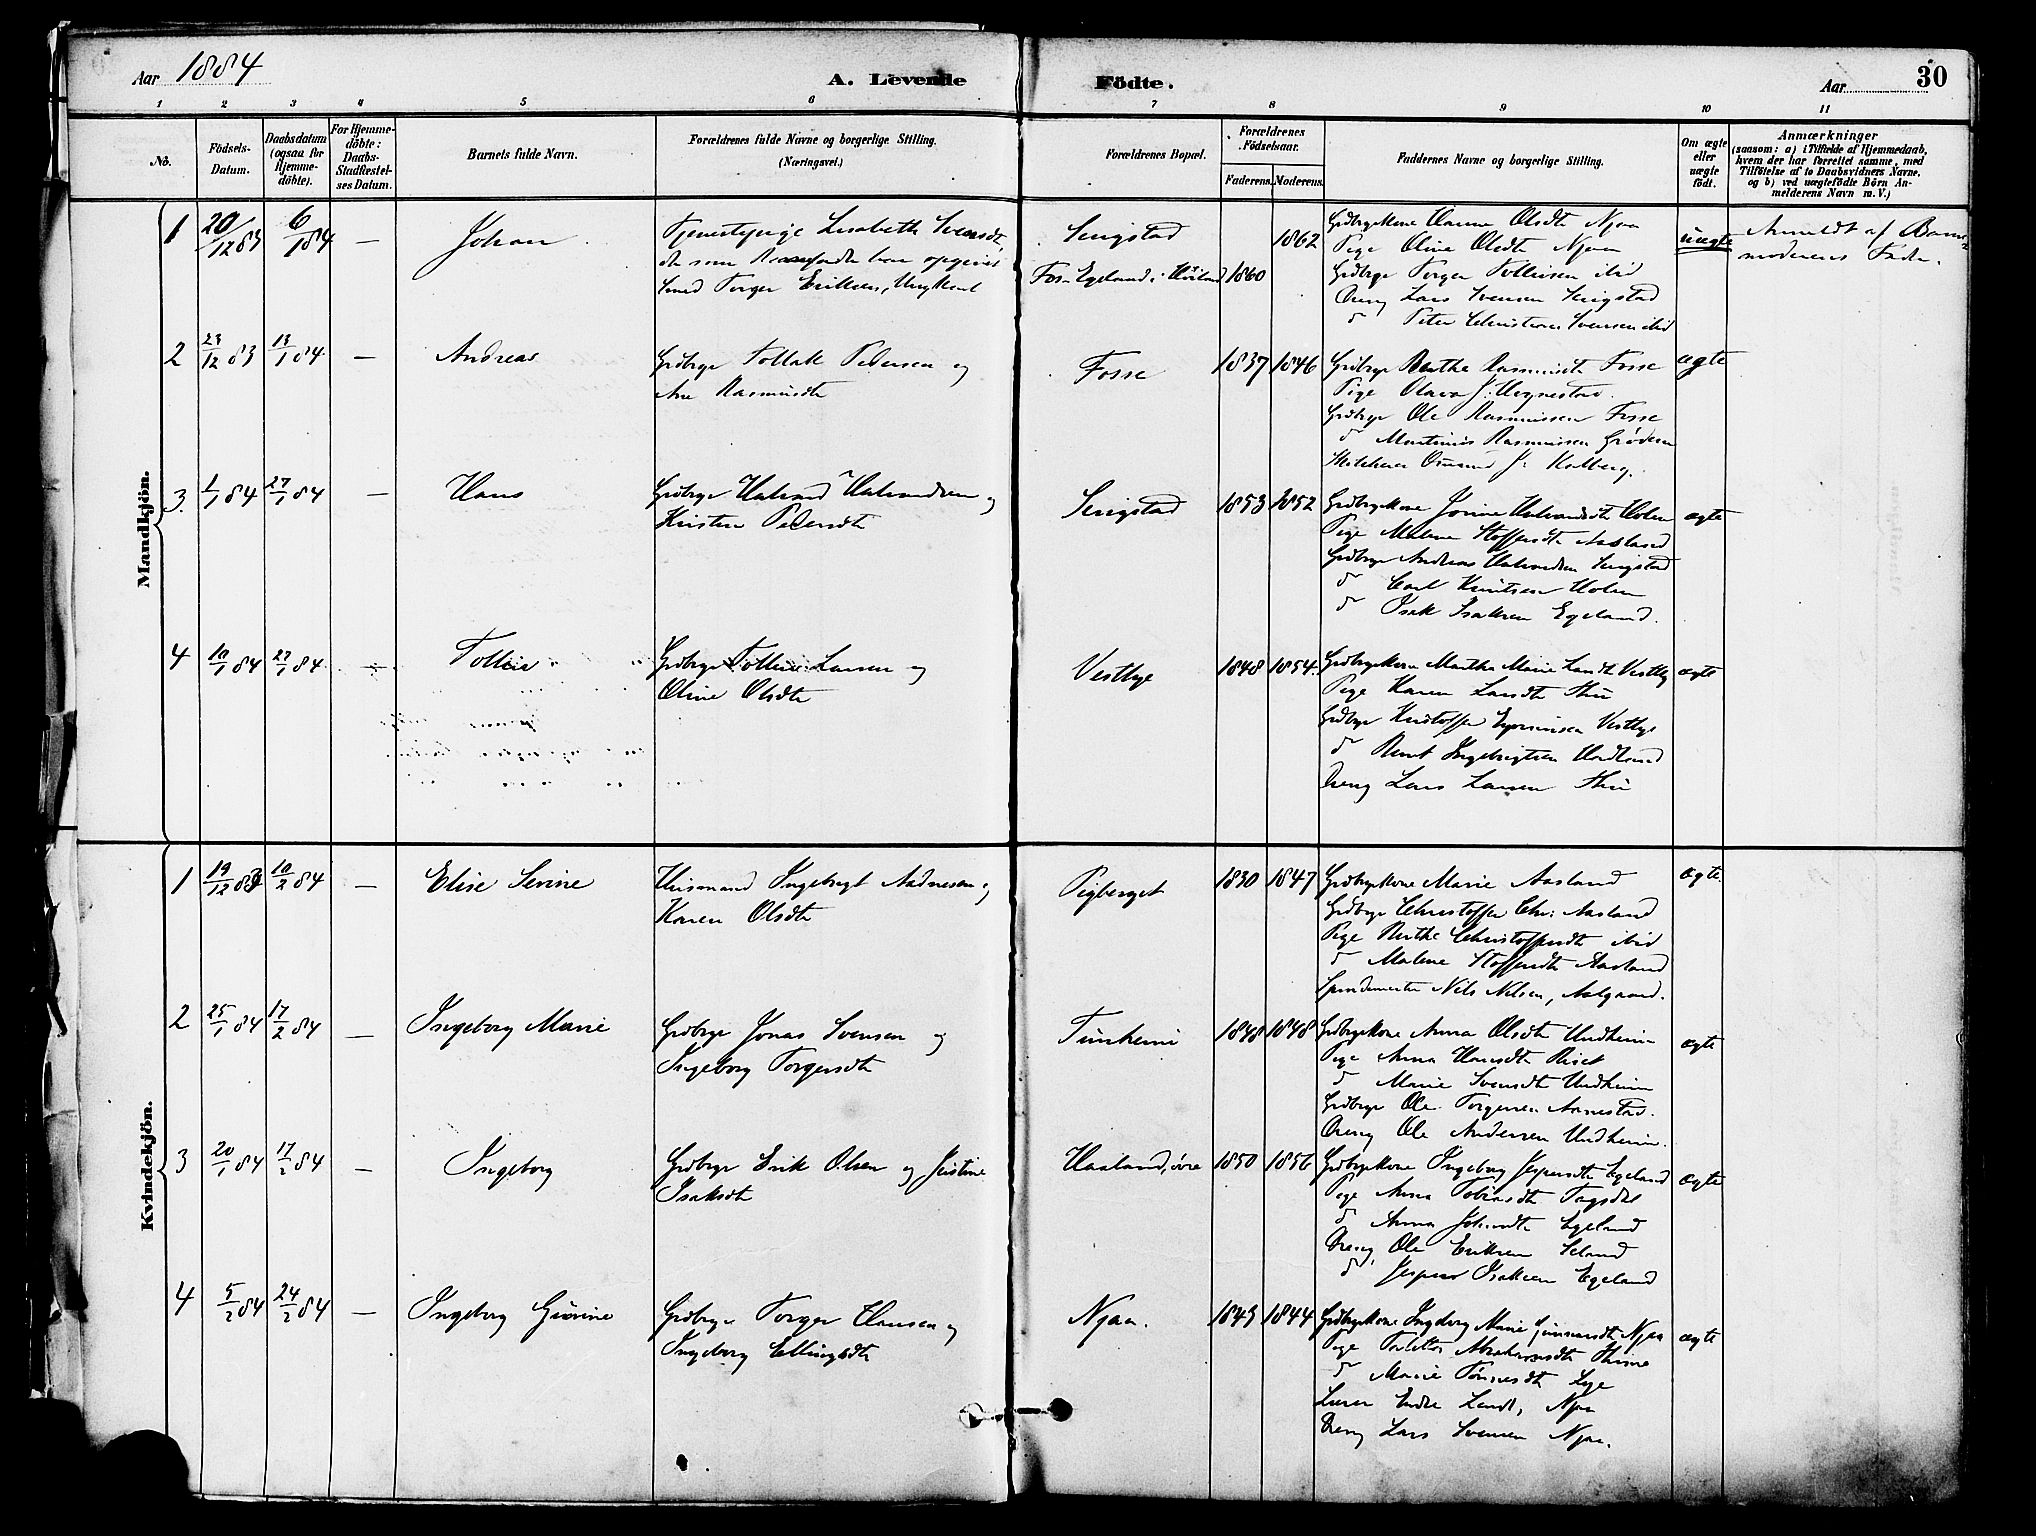 Aar 1884
A. Levende Födte.
Aar 30
1 2 3 4 5 6 7 8 9 10 11
No.
Födsels-Datum.
Daabsdatum (ogsaa for Hjemme-döbte).
For Hjemme-döbte: Daabs-Stadfæstel-ses Datum.
Barnets fulde Navn.
Forældrenes fulde Navne og borgerlige Stilling. (Næringsvei.)
Forældrenes Bopæl.
Forældrenes Födselsaar.
Faderens. Moderens.
Faddernes Navne og borgerlige Stilling.
Om ægte eller uægte födt.
Anmærkninger
(saasom: a) i Tilfælde af Hjemmedaab,
hvem der har forrettet samme, med
Tilföielse af to Daabsvidners Navne,
og b) ved uægtefödte Börn An-
melderens Navn m. V.)
Mandkjön.
1 20/12 83 6/1 84 — Johan
Tjenestepige Lisabeth Svensdt,
som Barnefader har opgivet
med Torger Eriksen, Ungkarl
Serigstad
Egeland i Høiland 1860 1862
Grdbrgkone Hanne Olsdt Njaa
Pige Oline Olsdt Njaa
Grdbrgr Torger Tolleisen ibid
Dreng Lars Svensen Serigstad
do Peter Christian Svensen ibid
uægte
Anmeldt af Barne-
moderens Fader.
2 23/12 83 13/1 84 — Andreas
Grdbrgr Tollak Pedersen og
Ane Rasmusdt
Fosse 1837 1846
Grdbrgr Berthe Rasmusdt Fosse
Pige Olava J. Høgnestad.
Grdbrgr Ole Rasmussen Fosse
do Martinius Rasmussen Grødem
J. Kalberg.
ægte
3. 1/1 84 27/1 84 — Hans
Grdbrgr Halvard Halvardsen og
Kristen Pedersdt
Serigstad 1853 1852
Grdbrgkone Jorine Halvardsdt Holen
Pige Malene Stoffersdt Aasland
Grdbrgr Andreas Halvardsen Serigstad
do Carl Knutsen Holen
do Isak Isaksen Egeland.
ægte
4 10/1 84 27/1 84 — Tolleiv
Grdbrgr Tolleiv Larsen og
Oline Olsdt
Vestlye 1848 1854.
Grdbrgkone Martha Marie Larsdt Vestly
Pige Karen Larsdt Thu
Grdbrgr Kristoffer Vestlye
do Bernt Ingebrigtsen Hodland
Dreng Lars Larsen Thu
ægte
Kvindekjön.
1 19/12 83 10/2 84 — Elise Serine
Husmand Ingebregt Aadnesen og
Karen Olsdt
Pigberget 1830 1847
Grdbrgkone Marie Aasland
Grdbrgr Christoffer Chr: Aasland
Pige Berthe Christoffersdt ibid
do Malene Stoffersdt Aasland
Spindemester Nils Nilsen, Aalgaard.
ægte.
2 25/1 84 17/2 84 — Ingeborg Marie
Grdbrgr Jonas Svensen og
Ingeborg Torgersdt
Tunheim 1848 1848
Grdbrgkone Anna Olsdt Undheim
Pige Anna Hansdt Riset
do Marie Svensdt Undheim
Grdbrgr Ole Torgersen Aarrestad.
Dreng Ole Andersen Undheim.
ægte
3 20/1 84 17/2 84 — Ingeborg
Grdbrgr Erik Olsen og Kristine
Isaksdt
Haaland, øvre 1850 1856
Grdbrgkone Ingeborg Jespersdt Egeland
Pige Anna Tobiasdt Tagsdal
do Anna Johansdt Egeland
Dreng Ole Eriksen Seland
do Jesper Isaksen Egeland
ægte
4 5/2 84 24/2 84 — Ingeborg Gurine
Grdbrgr Torger Hansen og
Ingeborg Ellingsdt
Njaa. 1843 1844
Grdbrgkone Ingeborg Marie Gunnarsdt Njaa
Pige Abrahamsdt Thime
do Marie Tønnesdt Lye
Lærer Endre Njaa
Dreng Lars Svensen Njaa.
ægte